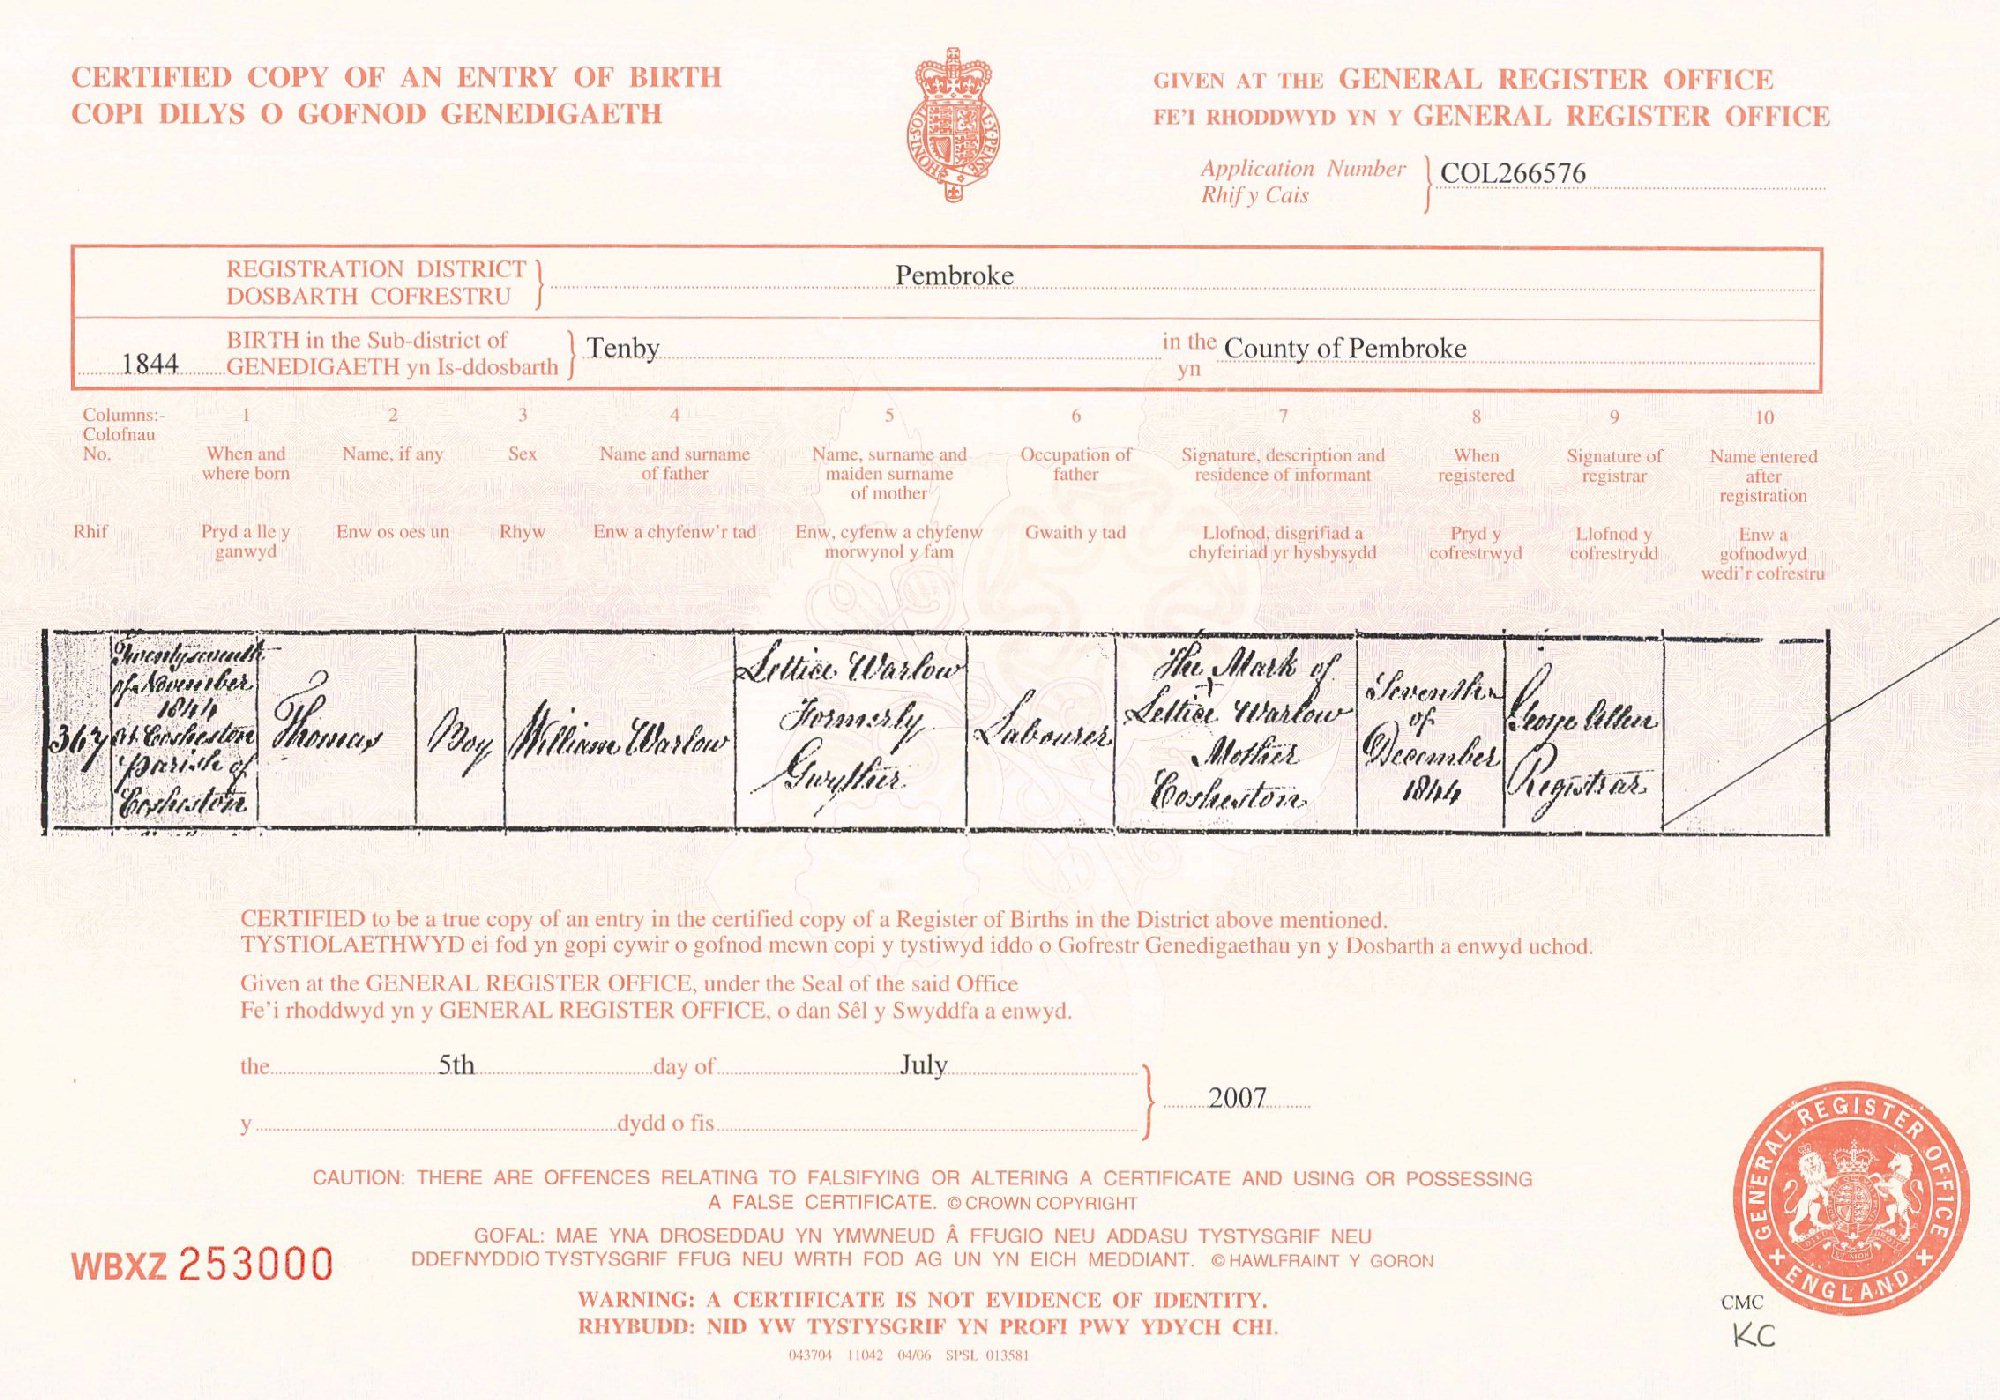 CERTIFIED COPY OF AN ENTRY OF BIRTH
COPI DILYS O GOFNOD GENEDIGAETH
HONI SOI
MAL Y PENCE
GIVEN AT THE GENERAL REGISTER OFFICE
FE'I RHODDWYD YN Y GENERAL REGISTER OFFICE
Application Number
Rhif y Cais
COL266576
REGISTRATION DISTRICT
DOSBARTH COFRESTRU
Pembroke
1844
BIRTH in the Sub-district of
GENEDIGAETH yn Is-ddosbarth
Tenby
in the
yn
County of Pembroke
Columns:- 1 2 3 4 5 6 7 8 9 10
Colofnau
No.
When and
where born
Name, if any
Sex
Name and surname
of father
Name, surname and
maiden surname
of mother
Occupation of
father
Signature, description and
residence of informant
When
registered
Signature of
registrar
Name entered
after
registration
Rhif
Pryd a lle y
ganwyd
Enw os oes un
Rhyw
Enw a chyfenw'r tad
Enw, cyfenw a chyfenw
morwynol y fam
Gwaith y tad
Llofnod, disgrifiad a
chyfeiriad yr hysbysydd
Pryd y
cofrestrwyd
Llofnod y
cofrestrydd
Enw a
gofnodwyd
wedi'r cofrestru
367
Twentyseventh
of November
1844
At Cosheston
parish of
Cosheston
Thomas
Boy
William Warlow
Lettice Warlow
Formerly
Gwyther
Labourer
The Mark of
X
Lettice Warlow
Mother
Cosheston
Seventh
of
December
1844
George
Registrar
CERTIFIED to be a true copy of an entry in the certified copy of a Register of Births in the District above mentioned.
TYSTIOLAETHWYD ei fod yn gopi cywir o gofnod mewn copi y tystiwyd iddo o Gofrestr Genedigaethau yn y Dosbarth a enwyd uchod.
Given at the GENERAL REGISTER OFFICE, under the Seal of the said Office
Fe'i rhoddwyd yn y GENERAL REGISTER OFFICE, o dan Sêl y Swyddfa a enwyd.
the 5th day of July
2007
y dydd o fis
CAUTION: THERE ARE OFFENCES RELATING TO FALSIFYING OR ALTERING A CERTIFICATE AND USING OR POSSESSING
A FALSE CERTIFICATE. © CROWN COPYRIGHT
GOFAL: MAE YNA DROSEDDAU YN YMWNEUD Â FFUGIO NEU ADDASU TYSTYSGRIF NEU
DDEFNYDDIO TYSTYSGRIF FFUG NEU WRTH FOD AG UN YN EICH MEDDIANT. © HAWLFRAINT Y GORON
WBXZ 253000
WARNING: A CERTIFICATE IS NOT EVIDENCE OF IDENTITY.
RHYBUDD: NID YW TYSTYSGRIF YN PROFI PWY YDYCH CHI.
043704 11042 04/06 SPSL 013581
GENERAL REGISTER OFFICE
ENGLAND
CMC
KC